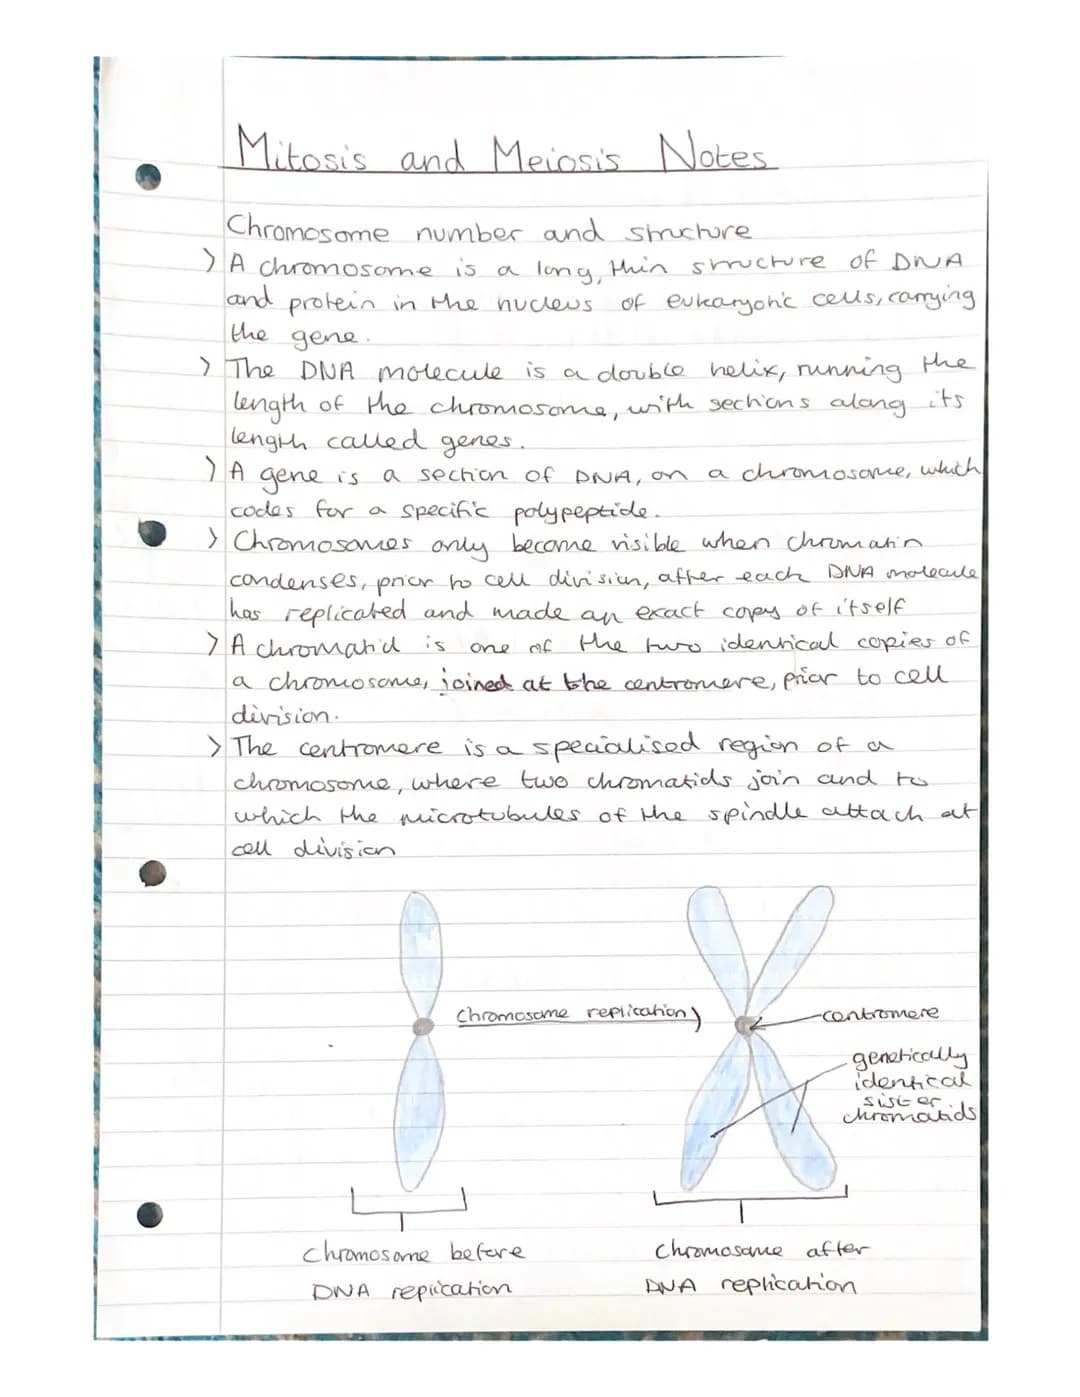 Mitosis and Meiosis Notes
Chromosome number and structure
> A chromosome is a long, thin structure of DNA
and protein in the nucleus of eukaryotic cells, carrying
the gene.
> The DNA molecule is a double helix, running the
length of the chromosome, with sections along its
length called genes.
> A gene is a section of DNA, on a chromosome, which
codes for a specific polypeptide.
> Chromosomes only become visible when chromatin
condenses, prior to cell division, after each DNA molecule
has replicated and made an exact copy of itself
> A chromatid is one of the two identical copies of
a chromosome, joined at the centromere, prior to cell
division.
> The centromere is a specialised region of a
chromosome, where two chromatids join and to
which the microtubules of the spindle attach at
cell division
Chromosome replication
centromere
genetically
identical
sister
chromatids
Chromosome before
DNA replication
Chromosome after
DNA replication